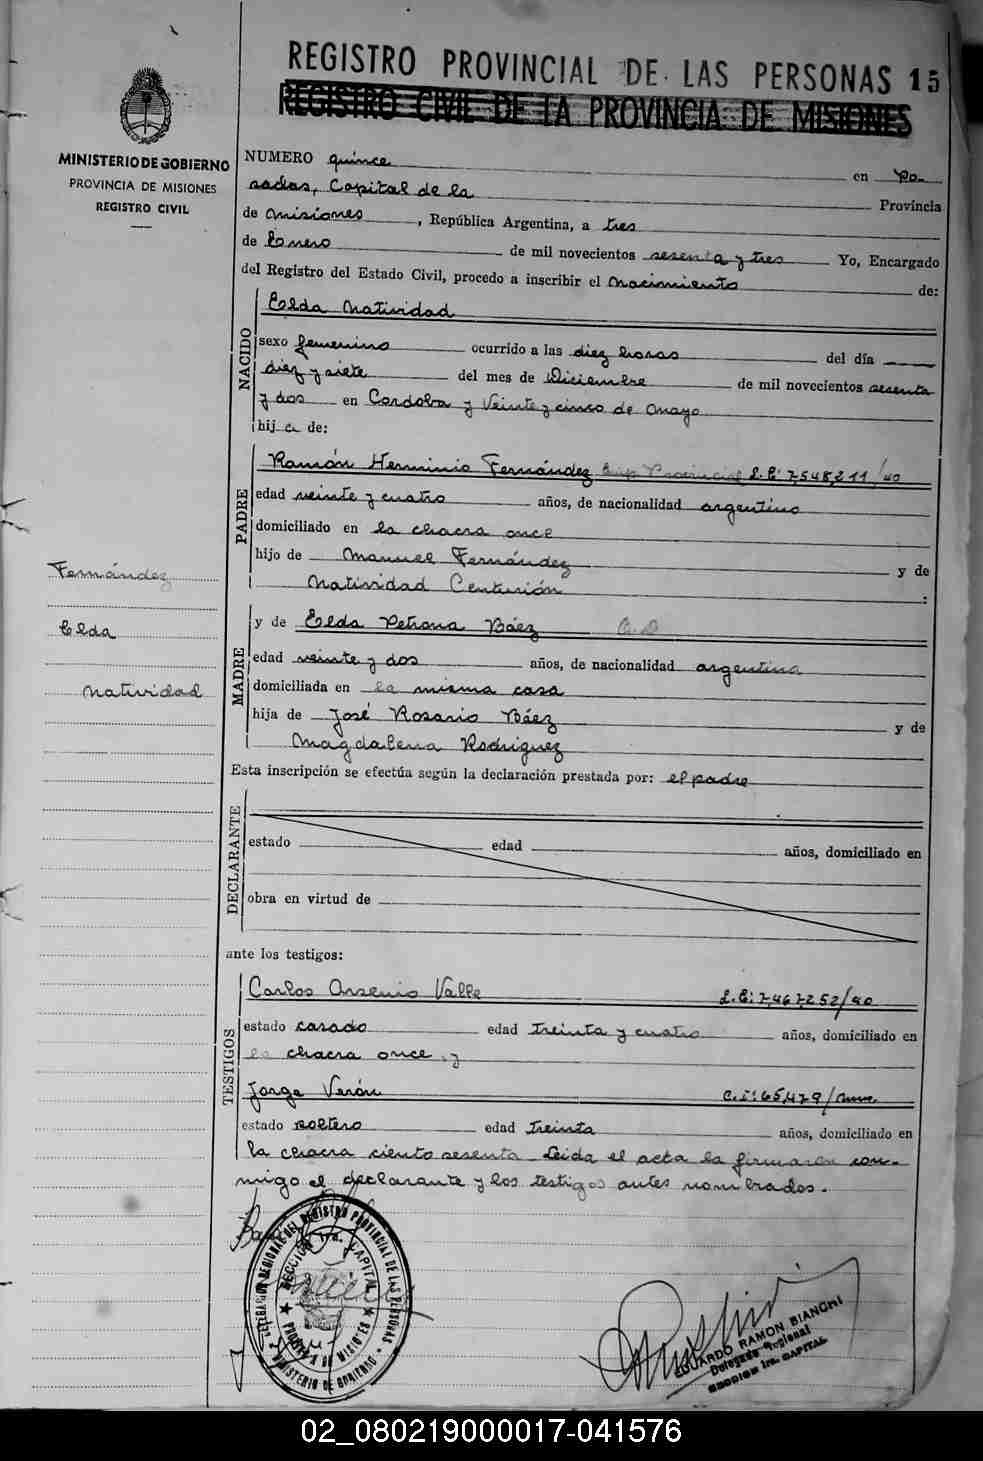 REGISTRO PROVINCIAL DE LAS PERSONAS 15
REGISTRO CIVIL DE LA PROVINCIA DE MISIONES
MINISTERIO DE GOBIERNO
PROVINCIA DE MISIONES
REGISTRO CIVIL
NUMERO quince en Po-
sadas, Capital de la Provincia
de Misiones, República Argentina, a tres
de Enero de mil novecientos sesenta y tres Yo, Encargado
del Registro del Estado Civil, procedo a inscribir el nacimiento de:
NACIDO
Elda Natividad
sexo femenino ocurrido a las diez horas del día
diez y siete del mes de Diciembre de mil novecientos sesenta
y dos en Cordoba y Veinte y cinco de Mayo
hija de:
PADRE
Ramón Herminio Fernández L.E: 7.548.211/40
edad veinte y cuatro años, de nacionalidad argentino
domiciliado en la chacra once
hijo de Manuel Fernández y de
Natividad Centurión :
Fernández
Elda
Natividad
MADRE
y de Elda Petrona Báez
edad veinte y dos años, de nacionalidad argentina
domiciliada en la misma casa
hija de José Rosario Báez y de
Magdalena Rodriguez
Esta inscripción se efectúa según la declaración prestada por: el padre
DECLARANTE
estado edad años, domiciliado en
obra en virtud de
ante los testigos:
TESTIGOS
Carlos Arsenio Valle L.E: 7.467.252/40
estado casado edad treinta y cuatro años, domiciliado en
la chacra once, y
Jorge Verón C.I: 65.479/
estado soltero edad treinta años, domiciliado en
la chacra ciento sesenta. Leida el acta la firmaron con-
migo el declarante y los testigos antes nombrados.
DELEGACION REGIONAL DEL REGISTRO PROVINCIAL DE LAS PERSONAS
SECCION 1ra. CAPITAL
PROVINCIA DE MISIONES
MINISTERIO DE GOBIERNO
EDUARDO RAMON BIANCHI
Delegado Regional
SECCION 1ra. CAPITAL
02_080219000017-041576